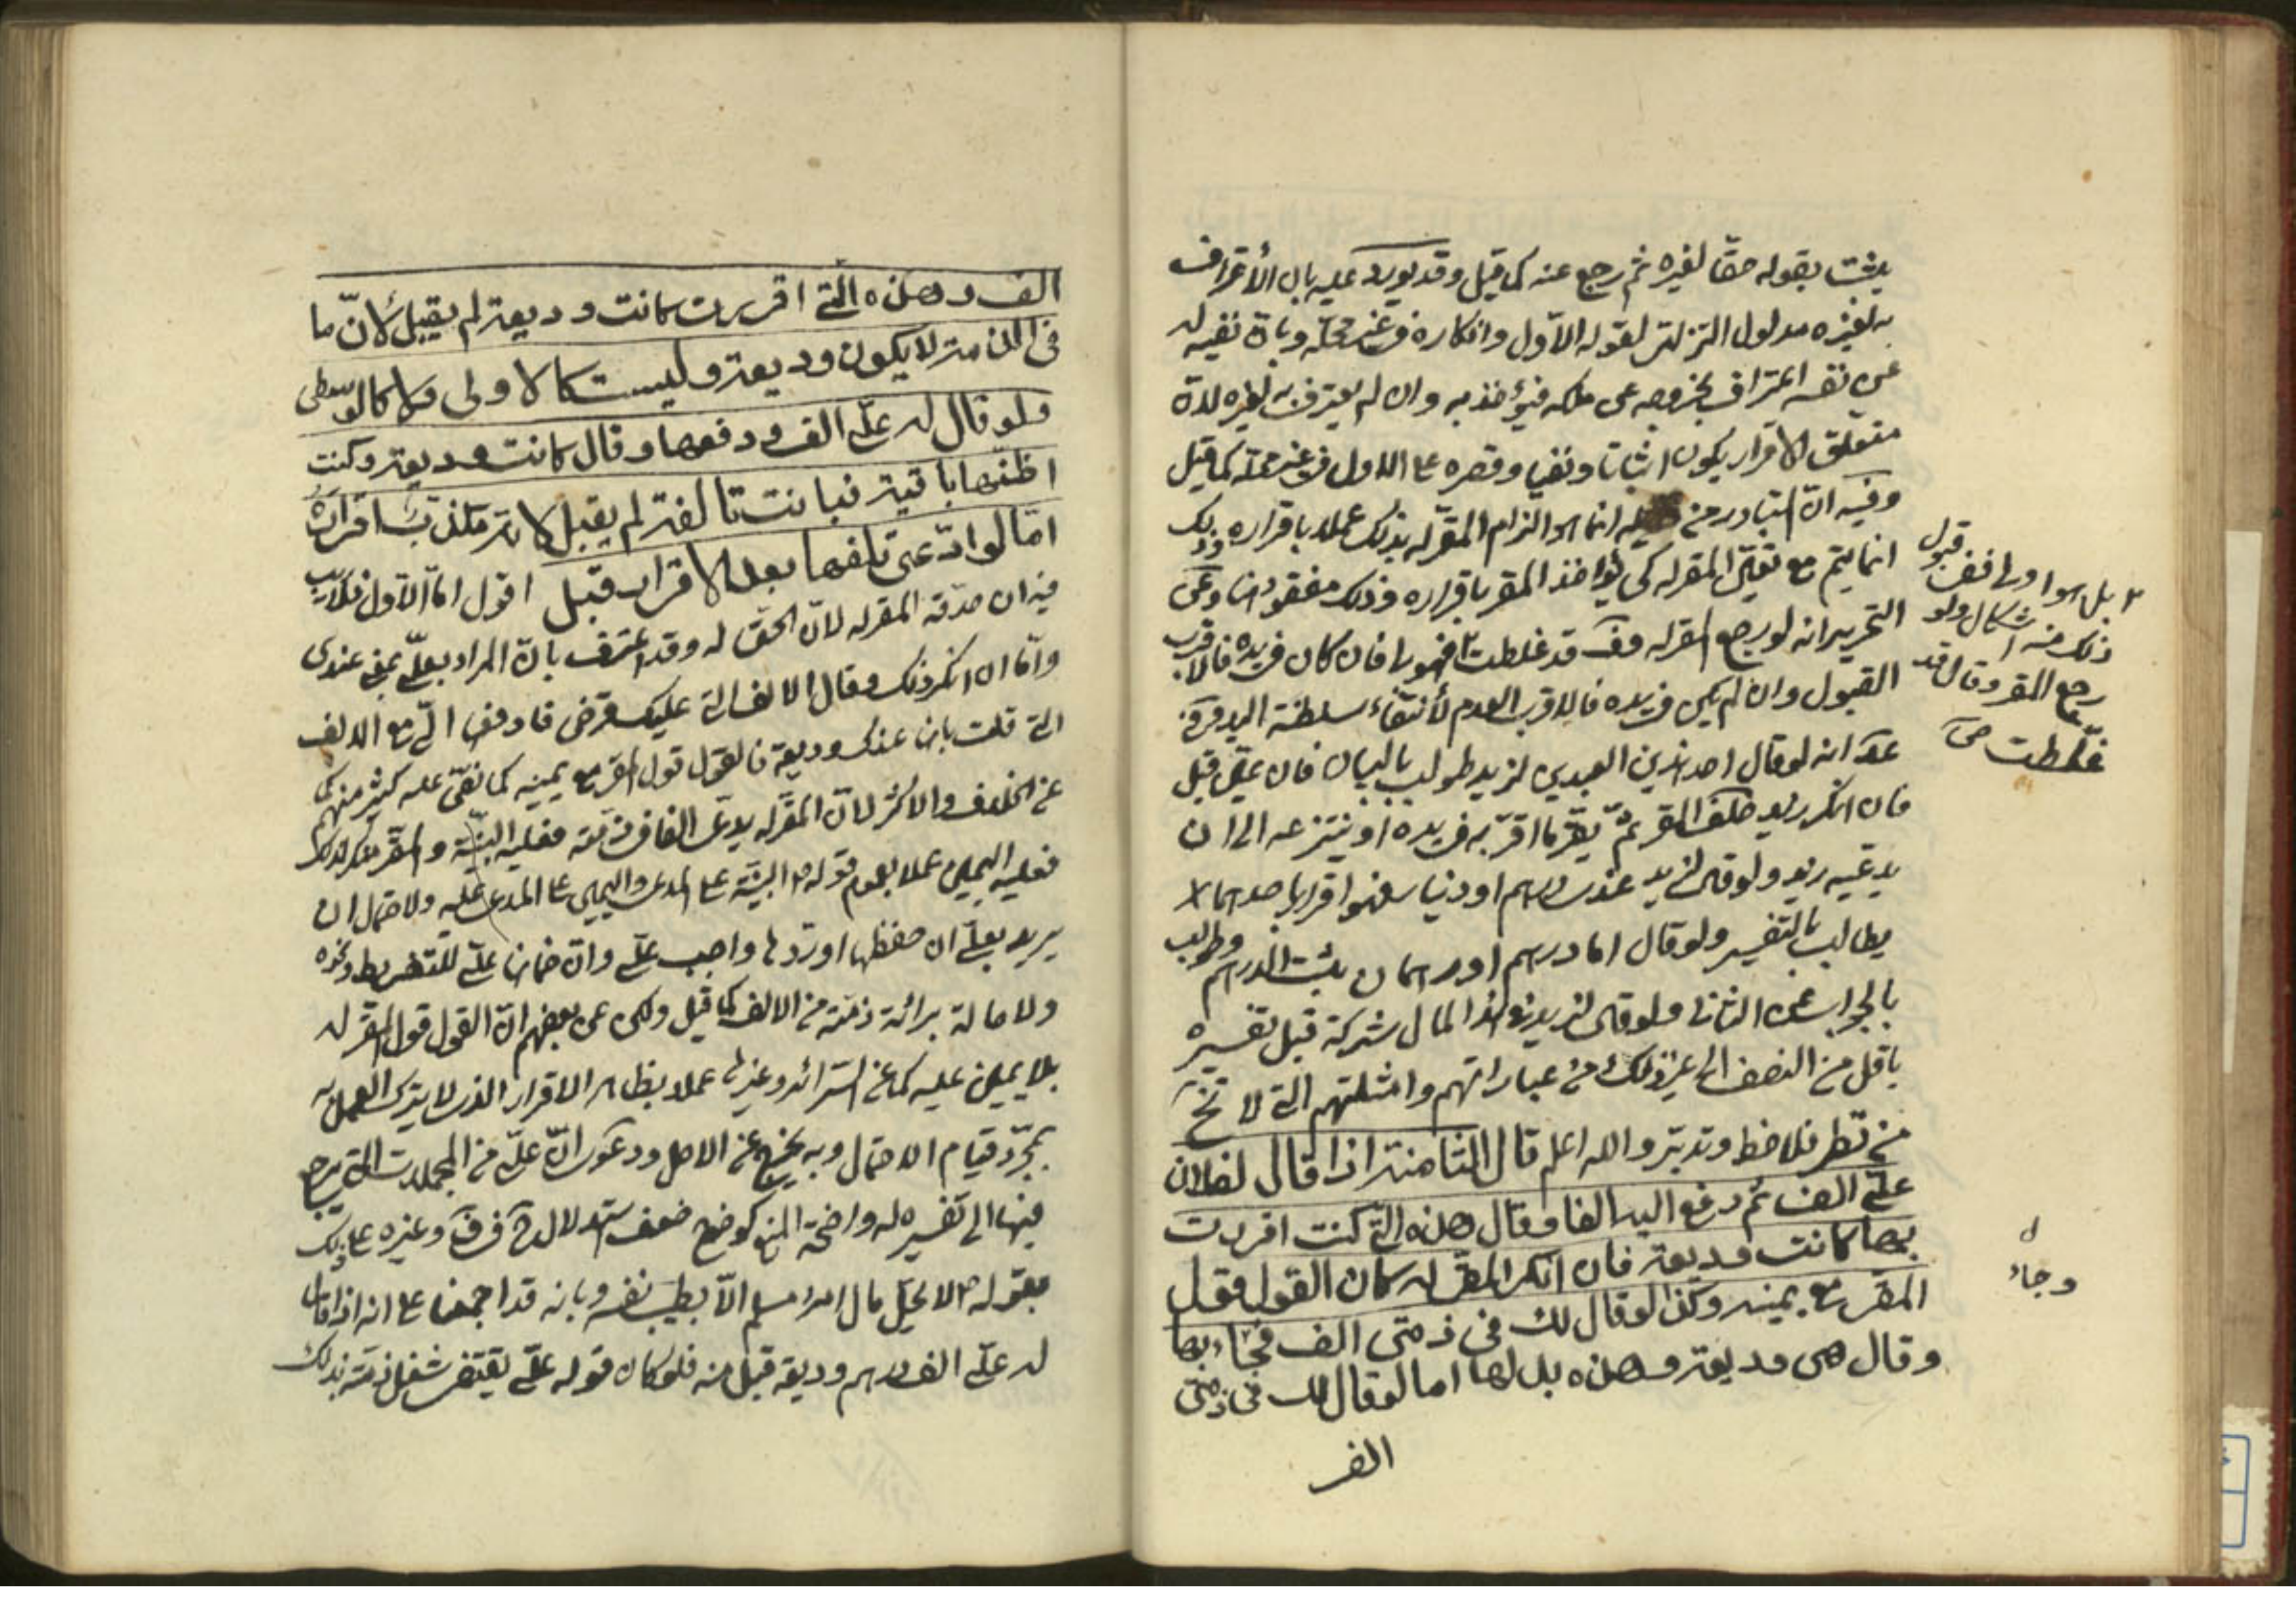 يثبت بقوله حقا لغيره ثم رجع عنه كما قيل وقد يورد عليه بان الأعتراف
به لغيره مدلول التزامى لقوله الاول وانكاره فى غير محله وبان نفيه له
عن نفسه اعتراف بخروجه عن ملكه فيؤخذ به وان لم يعترف به لغيره لان
متعلق الاقرار يكون اثباتا ونفيا وقصره على الاول فى غير محله كما قيل
وفيه ان المتبادر من انما هو الزام المقر له بذلك عملا باقراره وذلك
انما يتم مع تعين المقر له كى يؤاخذ المقر باقراره وذلك مفقود هنا وعن
التحرير انه لو رجع المقر له وقال قد غلطت فهو لها فان كان فى يده فالاقرب
القبول وان لم يكن فى يده فالاقرب العدم لأنتفاء سلطنة اليد
عد انه لو قال احد هذين العبدين لزيد طولب بالبيان فان عين قبل
فان انكر زيد حلف المقر ثم يقر ما اقر به فى يده او ينتزعه الى ان
يدعيه زيد ولو قال لزيد عندى درهم او دينار فهو اقرار باحدهما
يطالب بالتفسير ولو قال اما درهم او درهمان يثبت الدرهم وطولب
بالجواب عن الثانى ولو قال لزيد فى هذا المال شركة قبل تفسيره
باقل من النصف الى غير ذلك من عباراتهم وامثلتهم التى لا تخ
من نظر فلاحظ وتدبر والله اعلم قال الثامنة اذا قال لفلان
على الف ثم دفع اليه الفا وقال هذه التى كنت اقررت
بها كانت وديعة فان انكر المقر له كان القول قول
المقر مع يمينه وكذا لو قال لك فى ذمتى الف فجاء بها
وقال هى وديعة وهذه بدلها اما لو قال لك فى ذمتى
الف
بل هو اولى قبول
ذلك منه اشكال ولو
رجع المقر وقال قد
غلطت
وجاء
الف وهذه التى اقررت كانت وديعة لم يقبل لان ما
فى الذمة لا يكون وديعة وليست كالاولى ولا كالوسطى
ولو قال له على الف ودفعها وقال كانت وديعة وكنت
اظنها باقية فبانت تالفة لم يقبل لانه مكذب اقراره
اما لو ادعى تلفها بعد الاقرار قبل اقول اما الاول فلا ريب
فيه ان صدقه المقر له لان الحق له وقد اعترف بان المراد بعلى بمعنى عندى
واما ان انكر ذلك وقال الالف التى عليك قرض فادفعها الى مع الالف
التى قلت بانها عندك وديعة فالقول قول المقر مع يمينه كما نص عليه كثير منهم
عن الخلاف والاكثر لان المقر له يدعى الفا فى ذمته فعليه البينة والمقر منكر لذلك
فعليه اليمين عملا بعموم قوله البينة على المدعى واليمين على المدعى عليه ولاحتمال ان
يريد بعلى ان حفظها او ردها واجب على وان ضمانها على للتفريط ونحوه
ولاصالة برائة ذمته من الالف كما قيل ولكن عن بعضهم ان القول قول المقر له
بلا يمين عليه كما عن السرائر وغيرها عملا بظاهر الاقرار الذى لا يترك العمل به
بمجرد قيام الاحتمال وبه يخرج عن الاصل ودعوى ان على من المجملات التى يرجع
فيها الى تفسيره له واضحة المنع كوضوح ضعف استدلال وغيره على ذلك
بقوله لا يحل مال امرء مسلم الا بطيب نفسه وبانه قد اجمعنا على انه اذا قال
له على الف درهم وديعة قبل منه فلو كان قوله على يقتضى شغل ذمته بذلك